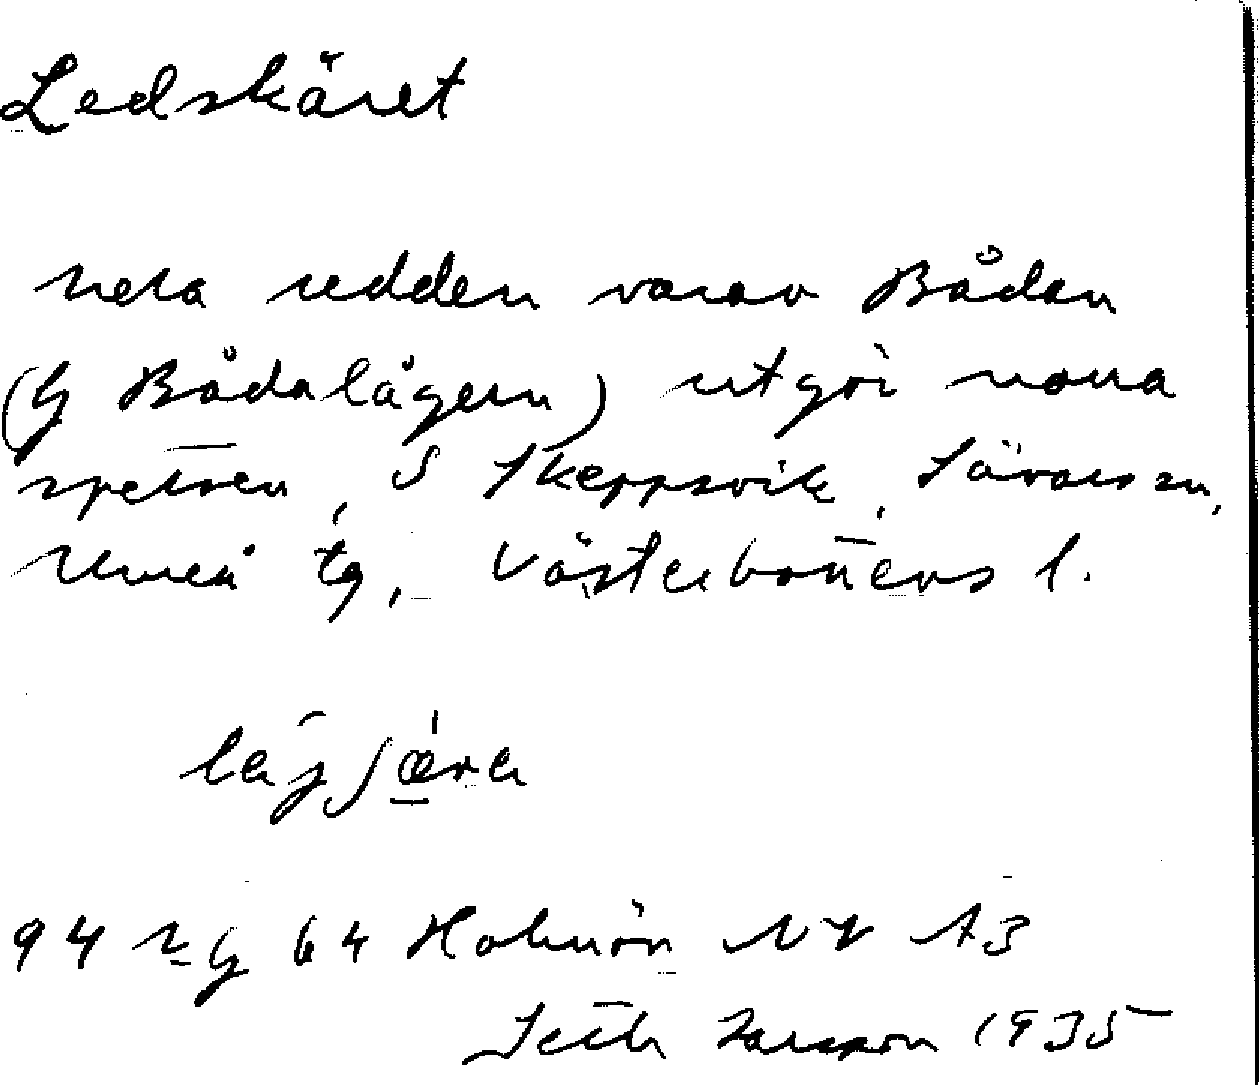 Ledskäret
hela udden varav Bådan
(G Bådalågern) utgör norra
spetsen, S Skeppsvik, Sävars sn,
Umeå tg, Västerbottens l.
94 G 64 Holmön NV A3
Seth Larsson 1935